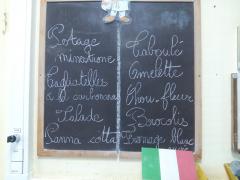 Potage
minestrone
Tagliatelles
à la carbonara
Salade
Panna cotta
Taboulé
Omelette
Chou-fleur
Brocolis
Fromage blanc